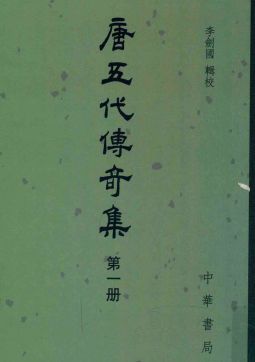 李劍國 輯校
唐五代傳奇集
第一册
中華書局